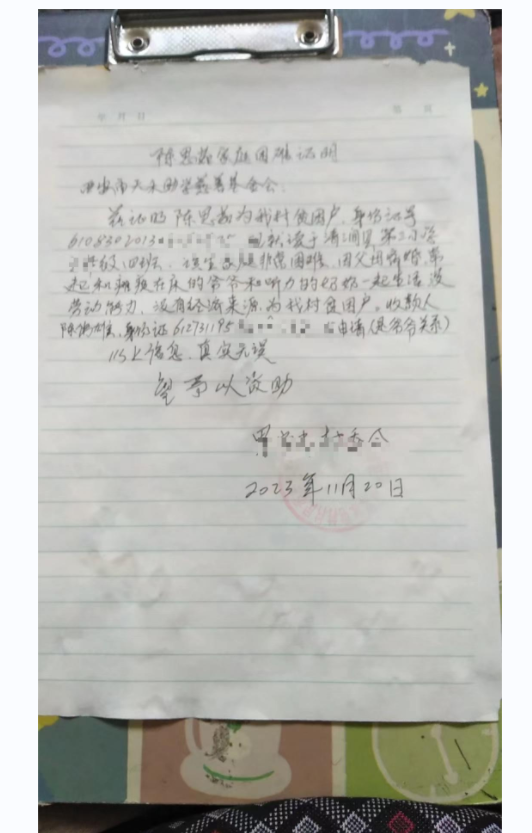 年 月 日 第 页
陈思蕊家庭困难证明
西安市天禾助学慈善基金会
兹证明 陈思蕊为我村贫困户,身份证号
6108302013 现就读于清涧县第二小学
级 四班. 该生家庭非常困难. 因父母离婚,
起和瘫痪在床的爷爷和听力的奶奶一起生活没
劳动能力. 没有经济来源. 为我村贫困户. 收款人
身份证 612731195 申请(是爷爷关系)
以上信息. 真实无误
望予以资助
村委会
2023年11月20日